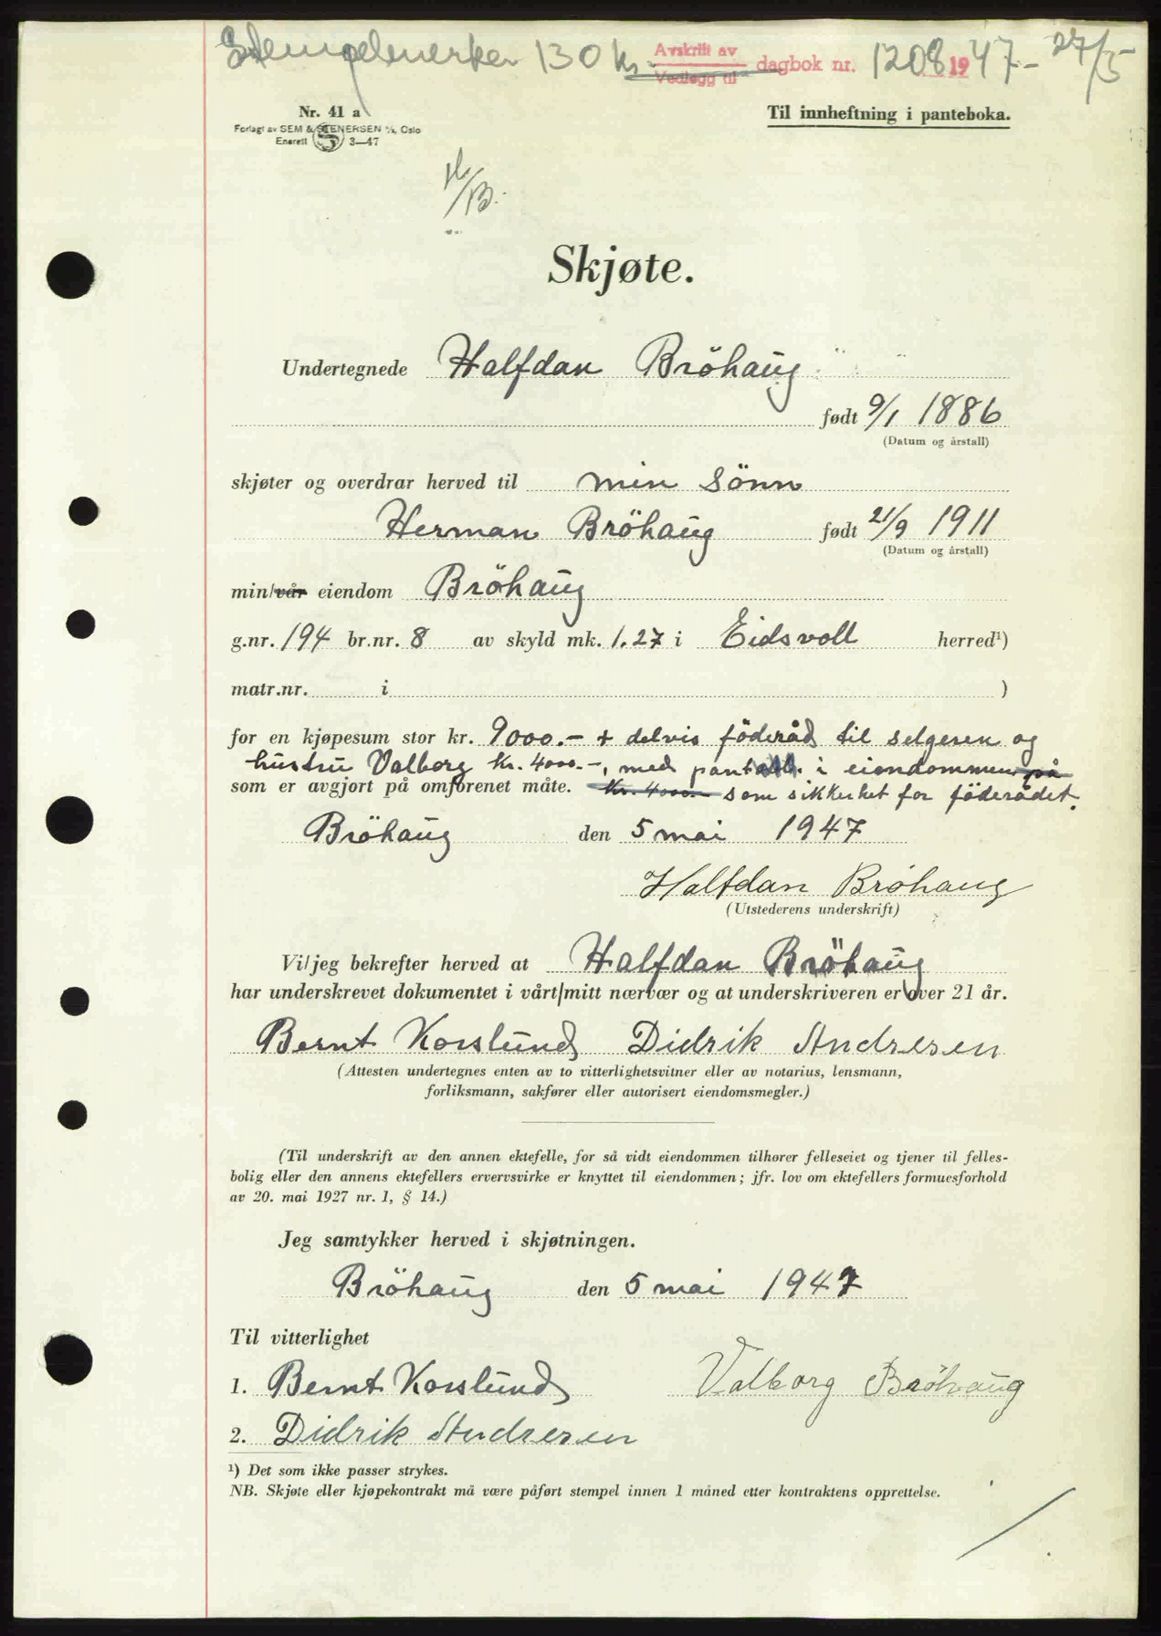 Stempelmerker 130 kr.
Avskrift av
Vedlegg til dagbok nr. 1208 1947 - 27/5
Nr. 41 a
Forlagt av SEM & STENERSEN A/S, Oslo
Enerett S 3—47
Til innheftning i panteboka.
H/B.
Skjøte.
Undertegnede Halfdan Bröhaug
født 9/1 1886
(Datum og årstall)
skjøter og overdrar herved til min sönn
Herman Bröhaug født 21/9 1911
(Datum og årstall)
min/vår eiendom Bröhaug
g.nr. 194 br.nr. 8 av skyld mk. 1.27 i Eidsvoll herred¹)
matr.nr. i )
for en kjøpesum stor kr. 9000.- + delvis föderåd til selgeren og
hustru Valborg kr. 4000.-, med pant i eiendommen på
som er avgjort på omforenet måte. kr. 4000.- som sikkerhet for föderådet.
Bröhaug den 5 mai 1947
Halfdan Bröhaug
(Utstederens underskrift)
Vi/jeg bekrefter herved at Halfdan Bröhaug
har underskrevet dokumentet i vårt/mitt nærvær og at underskriveren er over 21 år.
Bernt Korslund Didrik Andresen
(Attesten undertegnes enten av to vitterlighetsvitner eller av notarius, lensmann,
forliksmann, sakfører eller autorisert eiendomsmegler.)
(Til underskrift av den annen ektefelle, for så vidt eiendommen tilhorer felleseiet og tjener til felles-
bolig eller den annens ektefellers ervervsvirke er knyttet til eiendommen; jfr. lov om ektefellers formuesforhold
av 20. mai 1927 nr. 1, § 14.)
Jeg samtykker herved i skjøtningen.
Bröhaug den 5 mai 1947
Til vitterlighet
1. Bernt Korslund Valborg Bröhaug
2. Didrik Andresen
¹) Det som ikke passer strykes.
NB. Skjøte eller kjøpekontrakt må være påført stempel innen 1 måned etter kontraktens opprettelse.